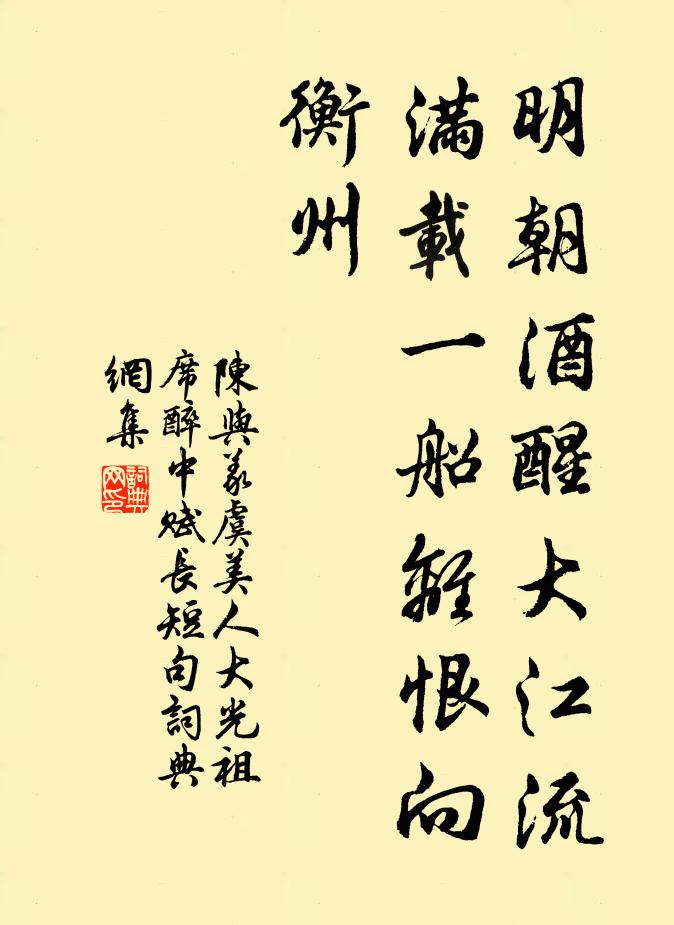 明朝酒醒大江流
滿載一船離恨向
衡州
陳與義虞美人大光祖
席醉中賦長短句詞典
網集
詞典網印